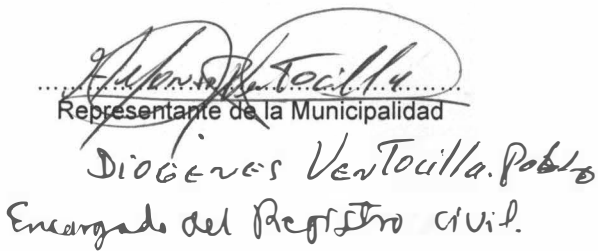 Ventocilla
Representante de la Municipalidad
DIOGENES VenTocilla. Pablo
Encargado del Registro civil.